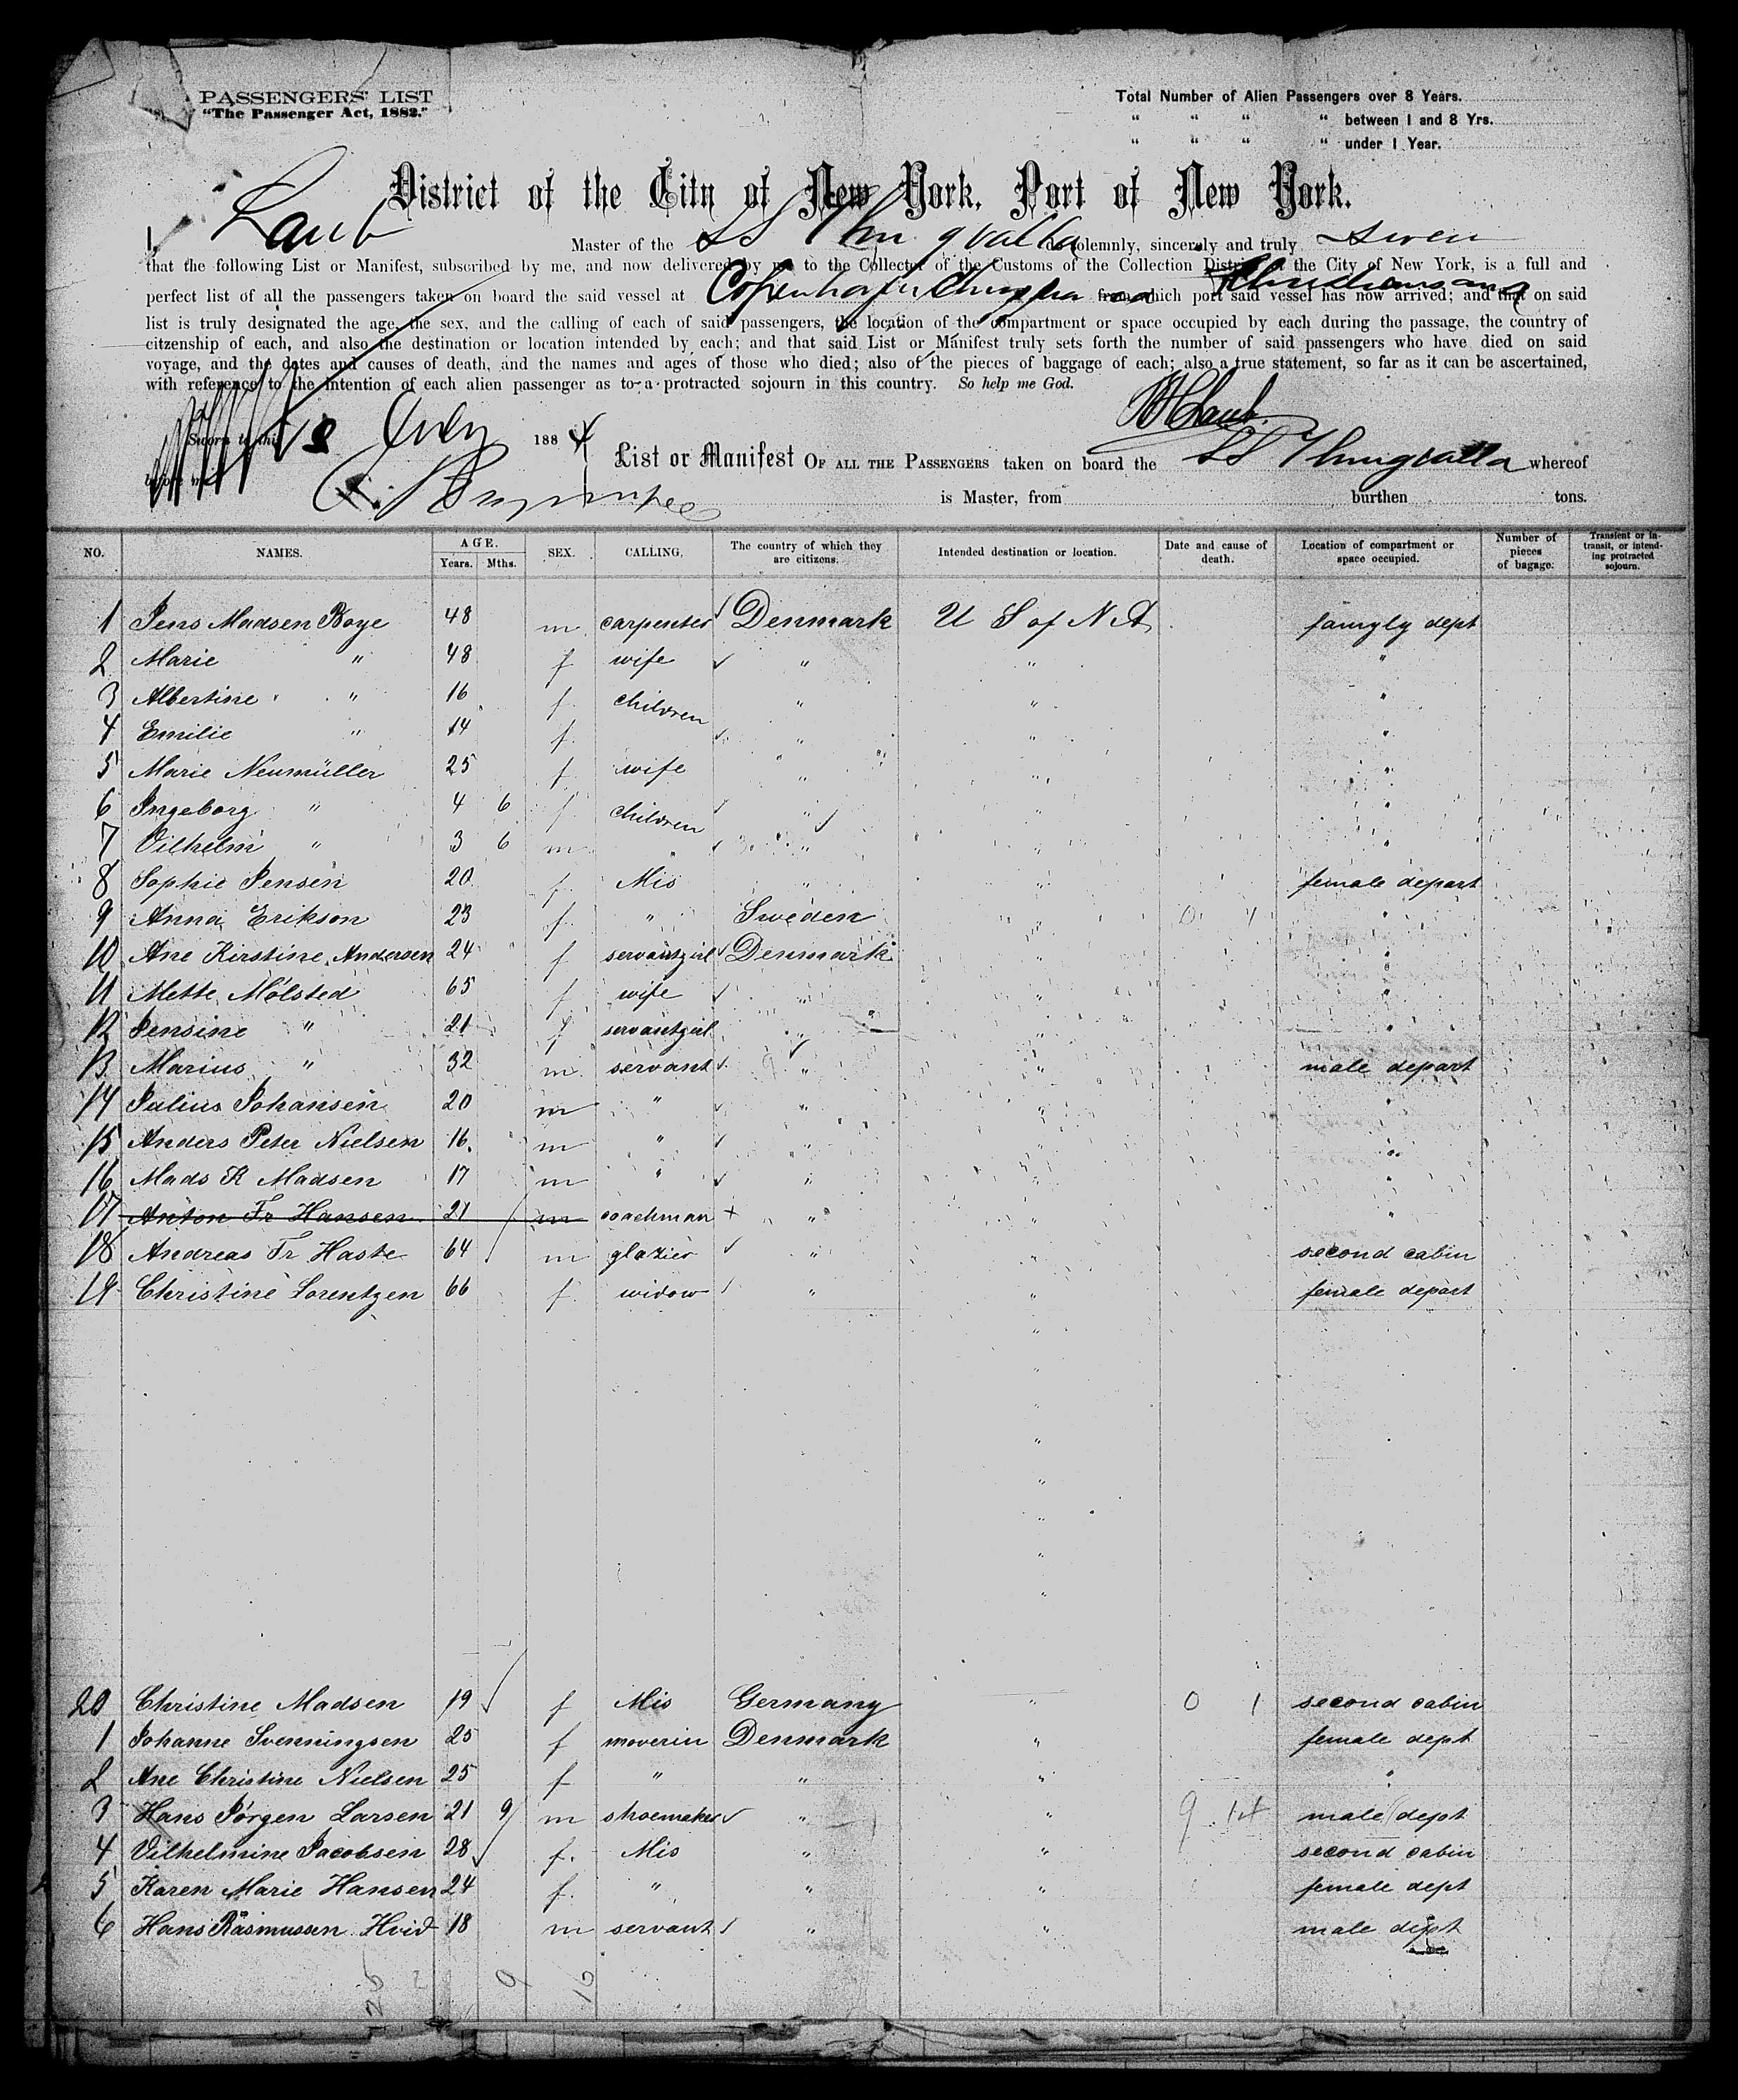 PASSENGERS' LIST
"The Passenger Act, 1882."
Total Number of Alien Passengers over 8 Years.
" " " " between 1 and 8 Yrs.
" " " " under 1 Year.
District of the City of New York, Port of New York.
I, Laub Master of the SS Thingvalla do solemnly, sincerely and truly swear
that the following List or Manifest, subscribed by me, and now delivered by me to the Collector of the Customs of the Collection District of the City of New York, is a full and
perfect list of all the passengers taken on board the said vessel at Copenhagen Christiansand from which port said vessel has now arrived; and that on said
list is truly designated the age, the sex, and the calling of each of said passengers, the location of the compartment or space occupied by each during the passage, the country of
citzenship of each, and also the destination or location intended by each; and that said List or Manifest truly sets forth the number of said passengers who have died on said
voyage, and the dates and causes of death, and the names and ages of those who died; also of the pieces of baggage of each; also a true statement, so far as it can be ascertained,
with reference to the intention of each alien passenger as to a protracted sojourn in this country. So help me God.
Laub.
Sworn to this 18 July 1884
List or Manifest OF ALL THE PASSENGERS taken on board the SS Thingvalla whereof
is Master, from burthen tons.
NO. NAMES. AGE. Years. Mths. SEX. CALLING. The country of which they are citizens. Intended destination or location. Date and cause of death. Location of compartment or space occupied. Number of pieces of bagage. Transient or in-transit, or intend-ing protracted sojourn.
1 Jens Madsen Boye 48 m carpenter Denmark U S of N A. famyly dept
2 Marie " 48 f wife " " "
3 Albertine " 16 f. children " " "
4 Emilie " 14 f. " " "
5 Marie Neumüller 25 f wife " " "
6 Ingeborg " 4 6 f children " " "
7 Vilhelm " 3 6 m " " "
8 Sophie Jensen 20 f. Mis " " female depart
9 Anna Erikson 23 f. " Sweden " "
10 Ane Kirstine Andersen 24 f servantgirl Denmark " "
11 Mette Mölsted 65 f wife " " "
12 Jensine " 21 f servantgirl " " "
13 Marius " 32 m servant " " male depart
14 Julius Johansen 20 m " " " "
15 Anders Peter Nielsen 16 m " " " "
16 Mads R Madsen 17 m " " " "
17 Anton Fr Hansen 21 m coachman + " " "
18 Andreas Fr Haste 64 m glazier " " second cabin
19 Christine Lorentzen 66 f widow " " female depart
20 Christine Madsen 19 f Mis Germany " 0 1 second cabin
1 Johanne Svenningsen 25 f moverin Denmark " female dept
2 Ane Christine Nielsen 25 f " " " "
3 Hans Jörgen Larsen 21 9 m shoemaker " " 9 14 male dept
4 Vilhelmine Jacobsen 28 f. Mis " " second cabin
5 Karen Marie Hansen 24 f. " " " female dept
6 Hans Rasmussen Hvid 18 m servant " " male dept
26 9 16